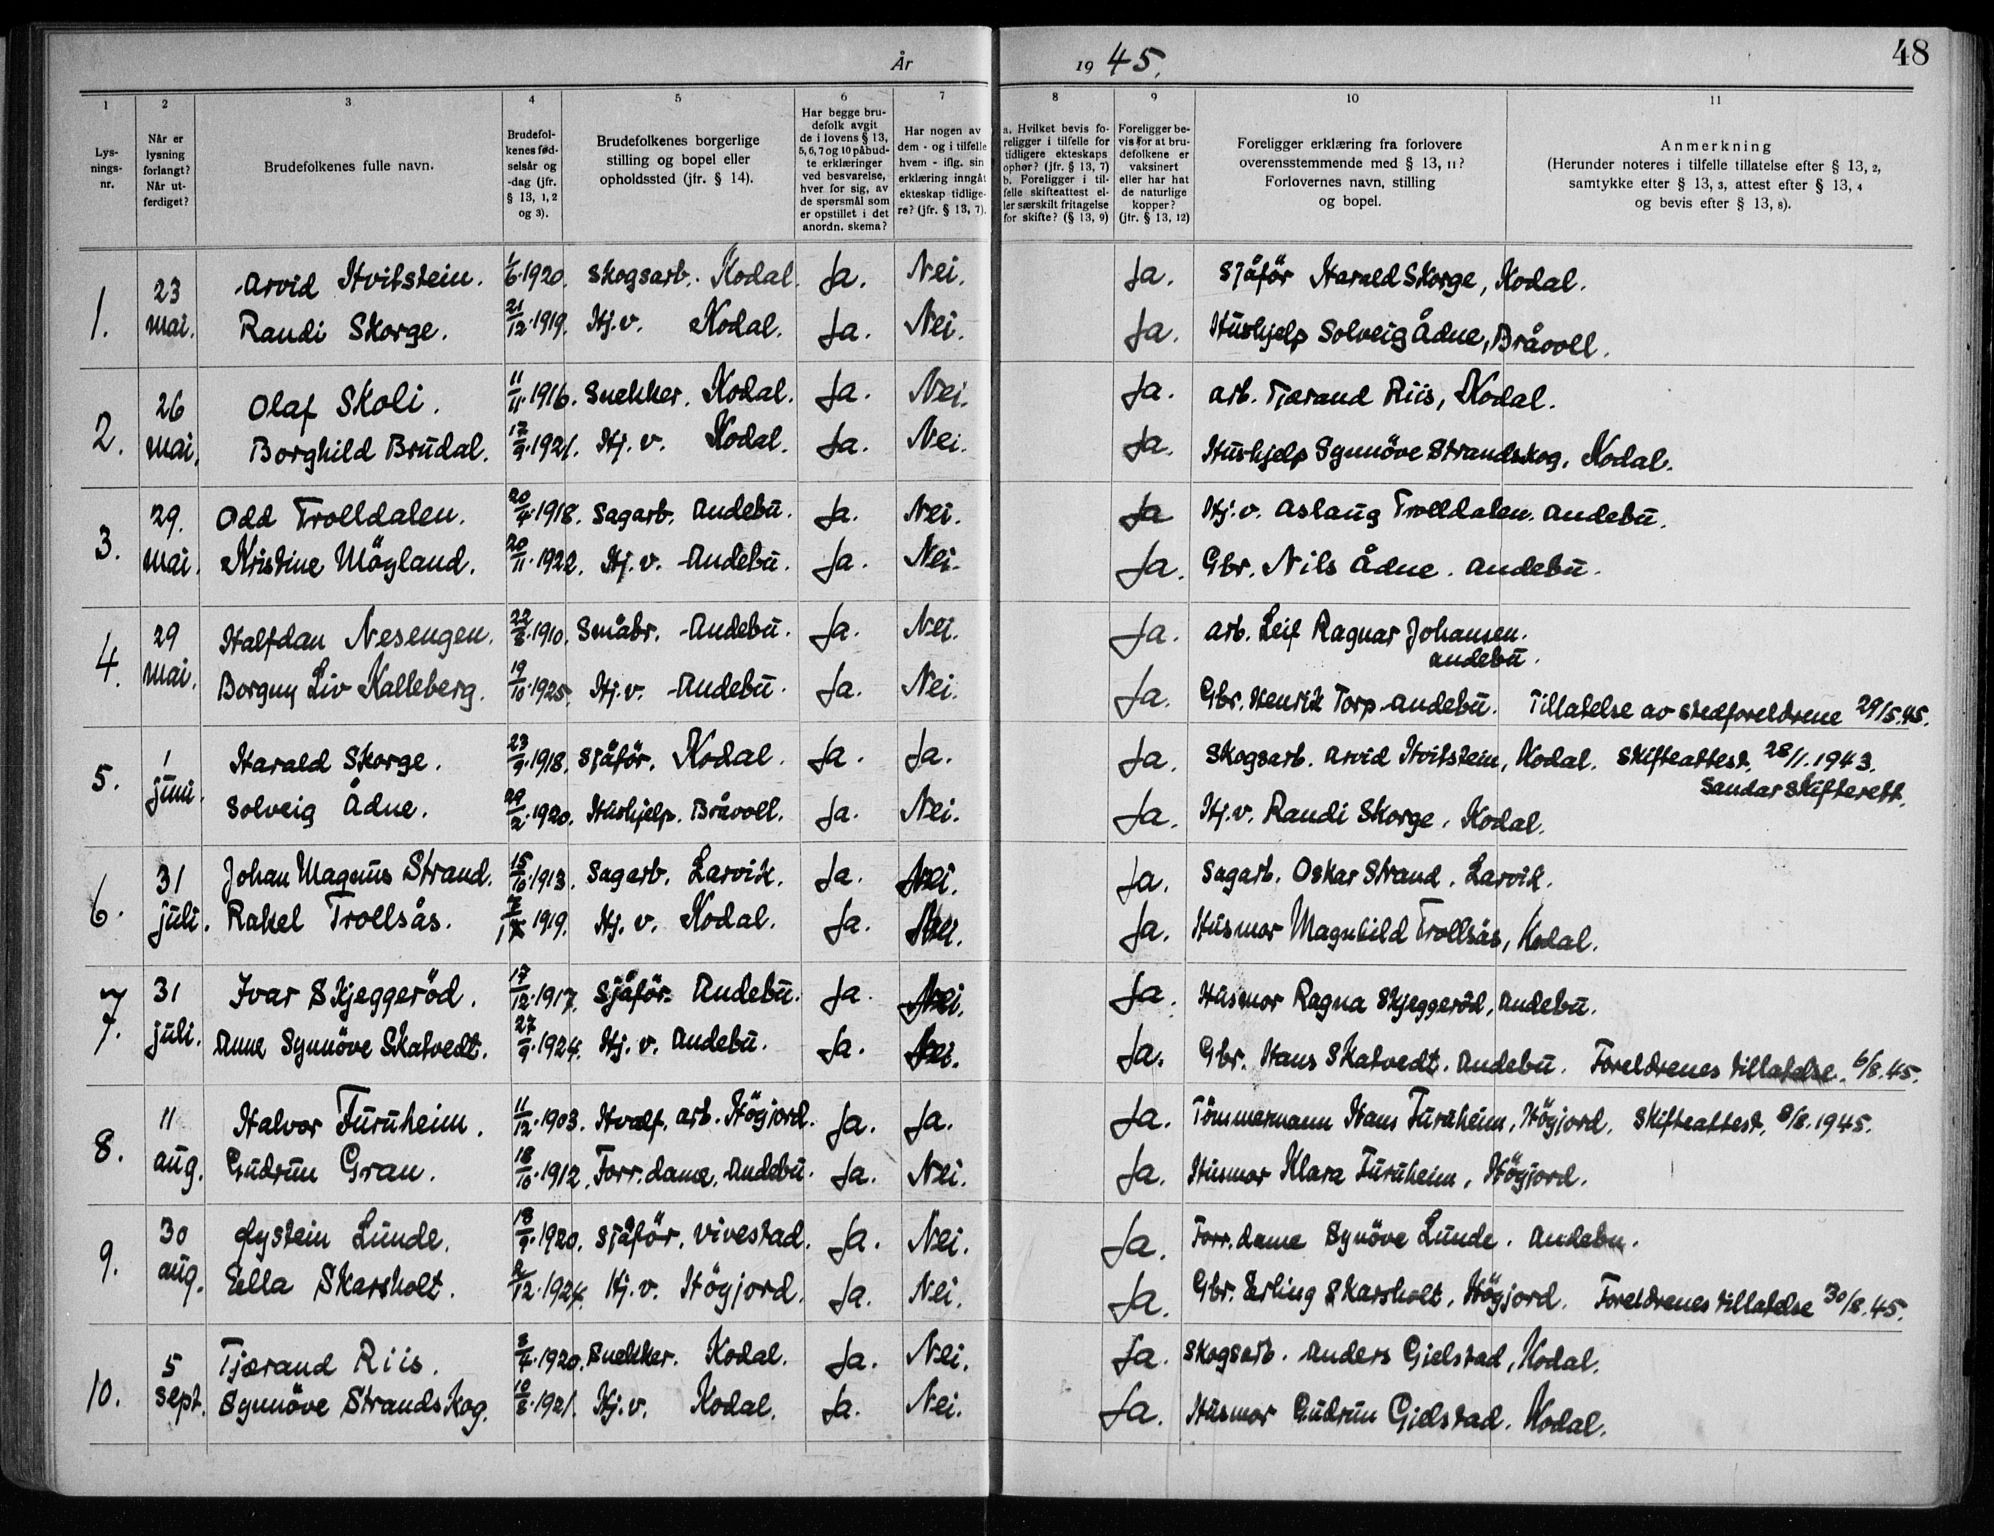 År 1945.
48
1 2 3 4 5 6 7 8 9 10 11
Lys-
nings-
nr.
Når er
lysning
forlangt?
Når ut-
ferdiget?
Brudefolkenes fulle navn.
Brudefol-
kenes fød-
selsår og
-dag (jfr.
§ 13, 1, 2
og 3).
Brudefolkenes borgerlige
stilling og bopel eller
opholdssted (jfr. § 14).
Har begge bru-
defolk avgit
de i lovens § 13,
5, 6, 7 og 10 påbud-
te erklæringer
ved besvarelse,
hver for sig, av
de spørsmål som
er opstillet i det
anordn. skema?
Har nogen av
dem - og i tilfelle
hvem - iflg. sin
erklæring inngått
ekteskap tidlige-
re? (jfr. § 13, 7).
a. Hvilket bevis fo-
religger i tilfelle for
tidligere ekteskaps
ophør? (jfr. § 13, 7)
b. Foreligger i til-
felle skifteattest el-
ler særskilt fritagelse
for skifte? (§ 13, 9)
Foreligger be-
vis for at bru-
defolkene er
vaksinert
eller har hat
de naturlige
kopper?
(jfr. § 13, 12)
Foreligger erklæring fra forlovere
overensstemmende med § 13, 11?
Forlovernes navn, stilling
og bopel.
Anmerkning
(Herunder noteres i tilfelle tillatelse efter § 13, 2,
samtykke efter § 13, 3, attest efter § 13, 4
og bevis efter § 13, 8).
1. 23 mai. Arvid Hvitstein. 1/6.1920. Skogsarb. Kodal. Ja. Nei. Ja. Sjåför Harald Skorge, Kodal.
Randi Skorge. 21/12.1919. Hj.v. Kodal. Ja. Nei. Ja. Hushjelp Solveig Ådne, Bråvoll.
2. 26 mai. Olaf Skoli. 11/11.1916. Snekker. Kodal. Ja. Nei. Ja. Arb. Tjærand Riis, Kodal.
Borghild Brudal. 17/9.1921. Hj.v. Kodal. Ja. Nei. Ja. Hushjelp Synnöve Strandskog, Kodal.
3. 29. mai. Odd Trolldalen. 20/4.1918. Sagarb. Andebu. Ja. Nei. Ja Hj.v. Aslaug Trolldalen. Andebu.
Kristine Mögland. 20/11.1922. Hj.v. Andebu. Ja. Nei. Ja. Gbr. Nils Ådne. Andebu.
4. 29 mai. Halfdan Nesengen. 22/8.1910. Småbr. Andebu. Ja. Nei. Ja. Arb. Leif Ragnar Johansen.
Andebu.
Borgny Liv Kalleberg. 19/10.1925. Hj.v. Andebu. Ja. Nei. Ja. Gbr. Henrik Torp Andebu. Tillatelse av stedforeldrene 29/5.45.
5. 1 juni. Harald Skorge. 23/9.1918. Sjåför. Kodal. Ja. Ja. Ja. Skogsarb. Arvid Hvitstein, Kodal. Skifteattest. 28/1.1943.
Sandar Skifterett.
Solveig Ådne. 29/2.1920. Hushjelp. Bråvoll. Ja. Nei. Ja. Hj.v. Randi Skorge. Kodal.
6. 31 juli. Johan Magnus Strand. 15/10.1913. Sagarb. Larvik. Ja. Nei. Ja. Sagarb. Oskar Strand. Larvik.
Rakel Trollsås. 1919. Hj.v. Kodal. Ja. Nei. Ja. Husmor Magnhild Trollsås, Kodal.
7. 31 juli. Ivar Skjeggeröd. 17/12.1917. Sjåför. Andebu. Ja. Nei. Ja. Husmor Ragna Skjeggeröd, Andebu.
Anne Synnöve Skatvedt. 27/9.1924. Hj.v. Andebu. Ja. Nei. Ja. Gbr. Hans Skatvedt. Andebu. Foreldrenes tillatelse. 6/8.45.
8. 11 aug. Halvor Furuheim. 11/12.1903. Hvalf. arb. Högjord. Ja. Ja. Ja. Tömmermann Hans Furuheim, Högjord. Skifteattest. 8/8.1945.
Gudrun Gran. 18/10.1912. Forr.dame. Andebu. Ja. Nei. Ja. Husmor Klara Furuheim, Högjord.
9. 30 aug. Øystein Lunde. 18/9.1920. Sjåför. Vivestad. Ja. Nei. Ja. Forr.dame Synöve Lunde. Andebu.
Ella Skarsholt. 2/12.1924. Hj.v. Högjord. Ja. Nei. Ja. Gbr. Erling Skarsholt, Högjord. Foreldrenes tillatelse 30/8.45.
10. 5 sept. Tjærand Riis. 1920. Snekker. Kodal. Ja. Nei. Ja. Skogsarb. Anders Gjelstad, Kodal.
Synnöve Strandskog. 10/8.1921. Hj.v. Kodal. Ja. Nei. Ja. Husmor Gudrun Gjelstad. Kodal.